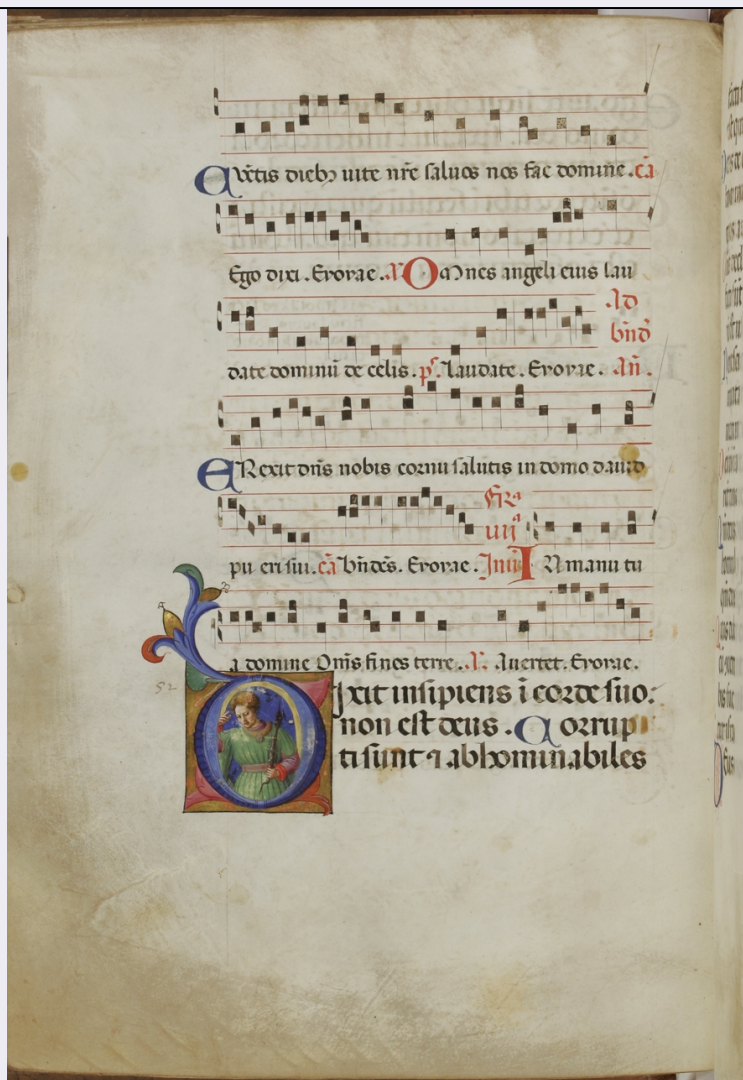 Cūctis dieb⁊ uite nr̄e saluos nos fac domine. cā
Ego dixi. Evovae. A̅ Omnes angeli eius lau
date dominū de celis. ps̄. Laudate. Evovae. Ad bn̄d̄ An̄.
ERexit dn̄s nobis cornu salutis in domo dauid
pu eri sui. cā bn̄dc̄s. Evovae. Fīa iiijᵃ Inuī IN manu tu
a domine Omīs fines terre. A̅. Auertet. Evovae.
52
Dixit insipiens ī corde suo:
non est deus. Corrup
ti sunt ⁊ abhominabiles